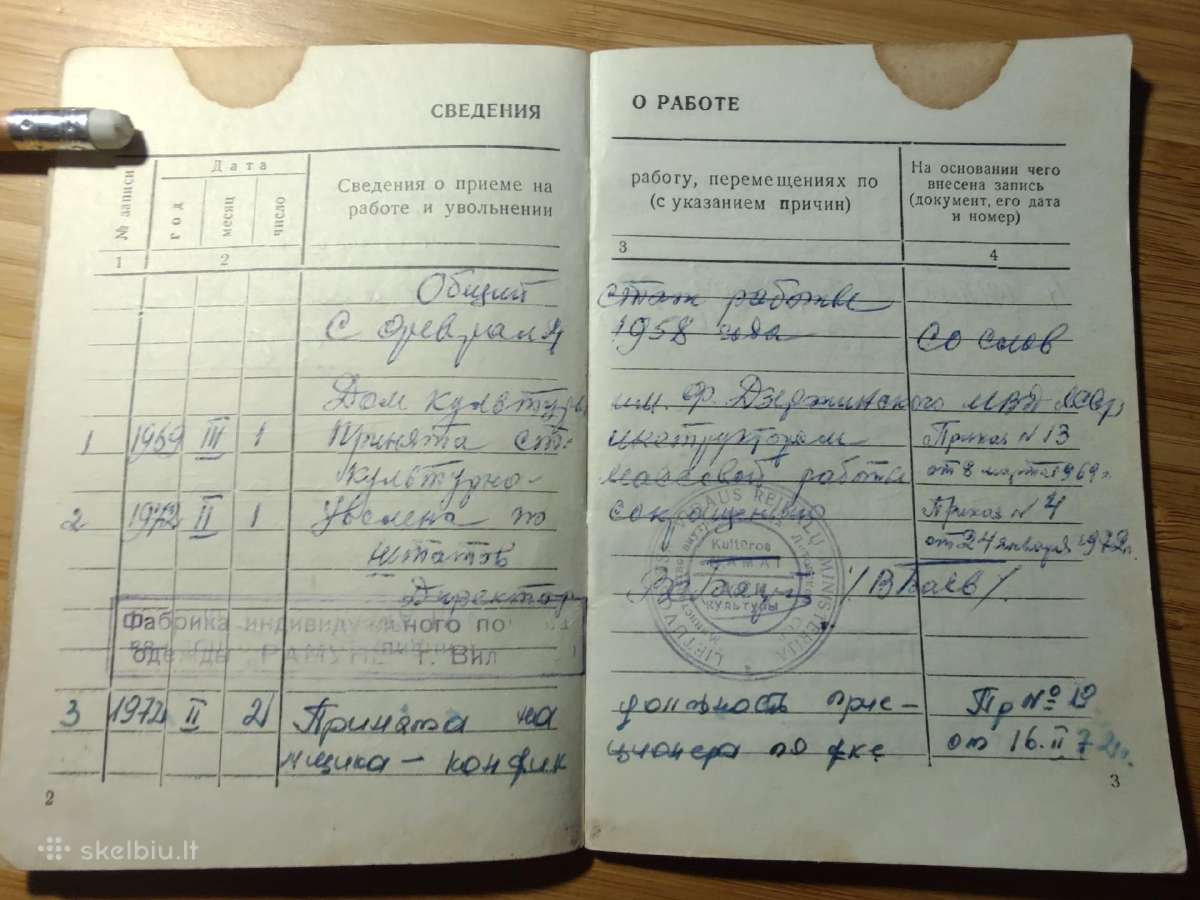 СВЕДЕНИЯ О РАБОТЕ
№ записи
Дата
год
месяц
число
Сведения о приеме на работу, перемещениях по
работе и увольнении (с указанием причин)
На основании чего
внесена запись
(документ, его дата
и номер)
1 2 3 4
Общий стаж работы
С февраля 1958 года со слов
Дом культуры им. Ф. Дзержинского МВД
1 1969 III 1 Принята ст. инструктором Приказ N 13
культурно- массовой работы от 8 марта 1969 г.
2 1972 II 1 Уволена по сокращению Приказ N 4
штатов от 24 января 1972 г.
Директор /В Баев/
LIETUVOS VIDAUS REIKALŲ MINISTERIJA
Kultūros
NAMAI
КУЛЬТУРЫ
Фабрика индивидуального по
одежды РАМУНЕ г. Вил
3 1972 II 21 Принята на должность прие- Пр № 12
мщика - конфекционера по от 16.II 72 г.
2 3
skelbiu.lt